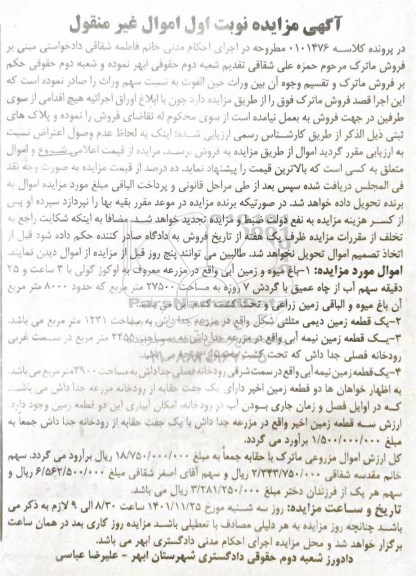 آگهی مزایده نوبت اول اموال غیر منقول
در پرونده کلاسه ۰۱۰۱۴۷۶ مطروحه در اجرای احکام مدنی خانم فاطمه شقاقی دادخواستی مبنی بر
فروش ماترک مرحوم حمزه علی شقاقی تقدیم شعبه دوم حقوقی ابهر نموده و شعبه دوم حقوقی حکم
بر فروش ماترک و تقسیم وجوه آن بین وراث حین الفوت به نسبت سهم وراث را صادر نموده است که
این اجرا قصد فروش ماترک فوق را از طریق مزایده دارد چون با ابلاغ اوراق اجرائیه هیچ اقدامی از سوی
طرفین در جهت فروش به عمل نیامده است از سوی محکوم له تقاضای فروش را نموده و پلاک های
ثبتی ذیل الذکر از طریق کارشناس رسمی ارزیابی شده؛ اینک به لحاظ عدم وصول اعتراض نسبت
به ارزیابی مقرر گردید اموال از طریق مزایده به فروش برسد. مزایده از قیمت اعلامی شروع و اموال
متعلق به کسی است که بالاترین قیمت را پیشنهاد نماید. ده درصد از قیمت مزایده به صورت وجه نقد
فی المجلس دریافت شده سپس بعد از طی مراحل قانونی و پرداخت الباقی مبلغ مورد مزایده اموال به
برنده تحویل داده خواهد شد. در صورتیکه برنده مزایده در موعد مقرر بقیه بها را نپردازد سپرده او پس
از کسر هزینه مزایده به نفع دولت ضبط و مزایده تجدید خواهد شد. مضافا به اینکه شکایت راجع به
تخلف از مقررات مزایده ظرف یک هفته از تاریخ فروش به دادگاه صادر کننده حکم داده شود قبل از
اتخاذ تصمیم اموال تحویل نخواهد شد. طالبین می توانند پنج روز قبل از مزایده از اموال دیدن نمایند.
اموال مورد مزایده: ۱-باغ میوه و زمین آبی واقع در مزرعه معروف به اوکوز گولی با ۳ ساعت و ۲۵
دقیقه سهم آب از چاه عمیق با گردش ۷ روزه به مساحت ۲۷۵۰۰ متر مربع که حدود ۸۰۰۰ متر مربع
آن باغ میوه و الباقی زمین زراعی و تحت کشت گندم آبی می باشد.
۲-یک قطعه زمین دیمی مثلثی شکل واقع در مزرعه جدا داش به مساحت ۱۲۳۱ متر مربع می باشد.
۳-یک قطعه زمین نیمه آبی واقع در مزرعه جدا داش به مساحت ۲۴۵۵ متر مربع در سمت غربی
رودخانه فصلی جدا داش که تحت کشت
۴-یک قطعه زمین نیمه آبی واقع در سمت شرقی رودخانه فصلی جدا داش به مساحت ۳۹۰۰ متر مربع می باشد.
به اظهار خواهان ها دو قطعه زمین اخیر دارای یک جفت حقابه از رودخانه مزرعه جدا داش می باشد
که در اوایل فصل و زمان جاری بودن آب در رودخانه، امکان آبیاری این دو قطعه زمین وجود دارد.
ارزش سه قطعه زمین اخیر واقع در مزرعه جدا داش با یک جفت حقابه از رودخانه جدا داش جمعاً به
مبلغ ۱/۵۰۰/۰۰۰/۰۰۰ برآورد می گردد.
کل ارزش اموال مزروعی ماترک با حقابه جمعاً به مبلغ ۱۸/۷۵۰/۰۰۰/۰۰۰ ریال برآورد می گردد. سهم
خانم مقدسه شقاقی ۲/۳۴۳/۷۵۰/۰۰۰ ریال و سهم آقای اصغر شقاقی مبلغ ۶/۵۶۲/۵۰۰/۰۰۰ ریال و
سهم هر یک از فرزندان دختر مبلغ ۳/۲۸۱/۲۵۰/۰۰۰ ریال می باشد.
تاریخ و ساعت مزایده: روز سه شنبه مورخ ۱۴۰۱/۱۱/۲۵ ساعت ۸/۳۰ الی ۹ لازم به ذکر می
باشد چنانچه روز مزایده به هر دلیلی مصادف با تعطیلی باشد مزایده روز کاری بعد در همان ساعت
برگزار خواهد شد و محل مزایده اجرای احکام مدنی دادگستری ابهر می باشد.
دادورز شعبه دوم حقوقی دادگستری شهرستان ابهر - علیرضا عباسی